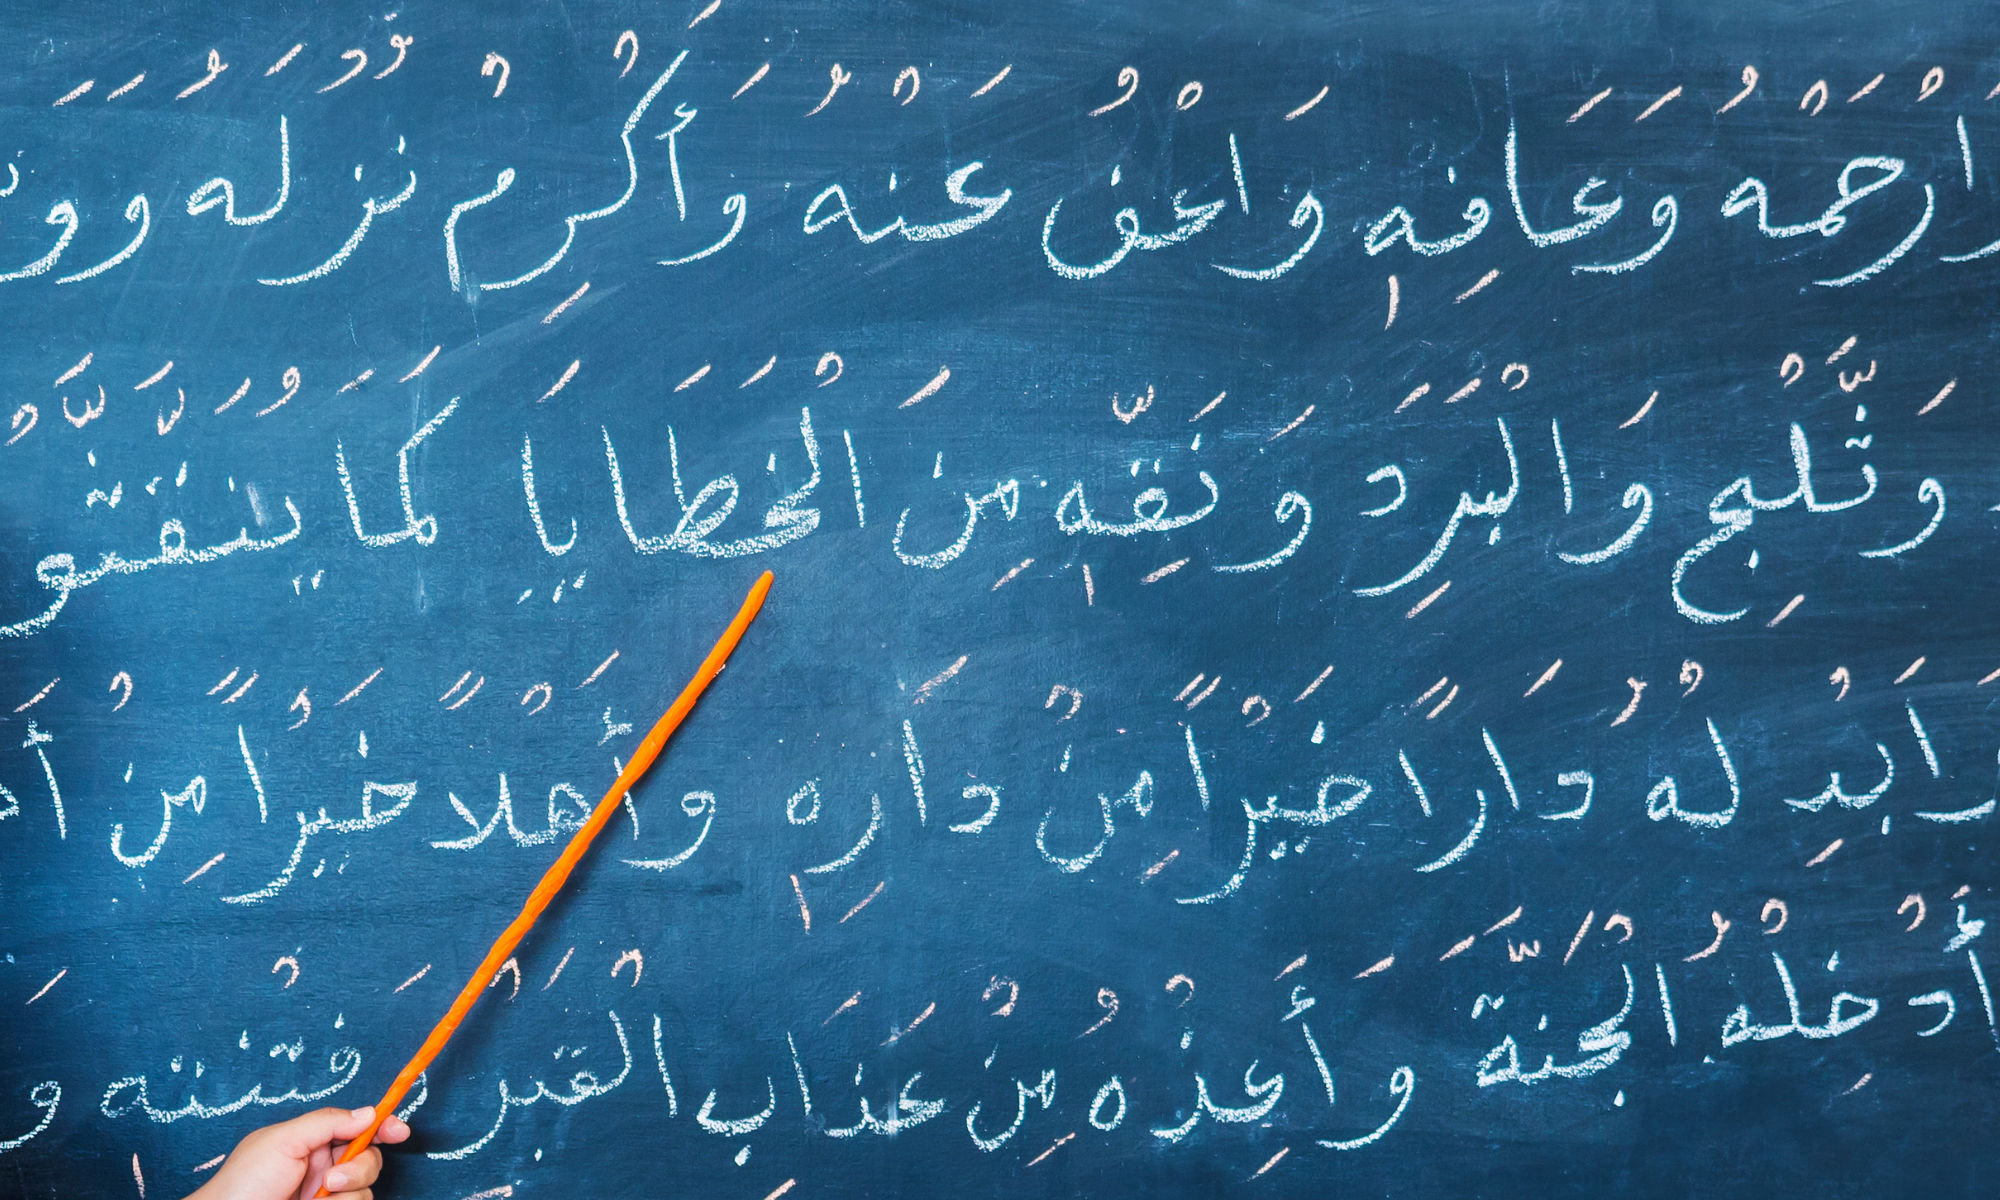 وَارْحَمْهُ وَعَافِهِ وَاعْفُ عَنْهُ وَأَكْرِمْ نُزُلَهُ وَ
وَثَّلْجِ وَالْبَرَدِ وَنَقِّهِ مِنَ الْخَطَايَا كَمَا
ابْدِلْهُ دَارًا خَيْرًا مِنْ دَارِهِ وَأَهْلًا خَيْرًا مِنْ
أَدْخِلْهُ الْجَنَّةَ وَأَعِذْهُ مِنْ عَذَابِ الْقَبْرِ وَفِتْنَتِهِ وَ